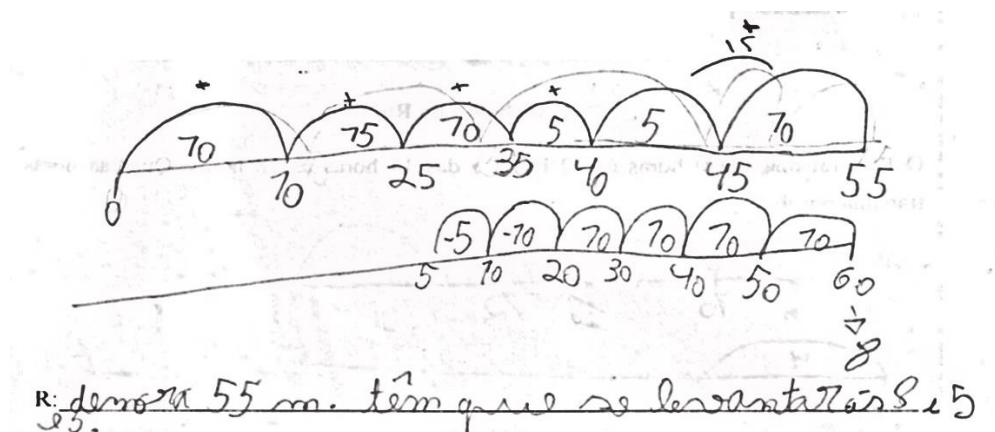 15
70 75 70 5 5 70
0 10 25 35 40 45 55
-5 -10 70 70 70 70
5 10 20 30 40 50 60
8
R: demora 55 m. têm que se levantar às 8 e 5
e 5.